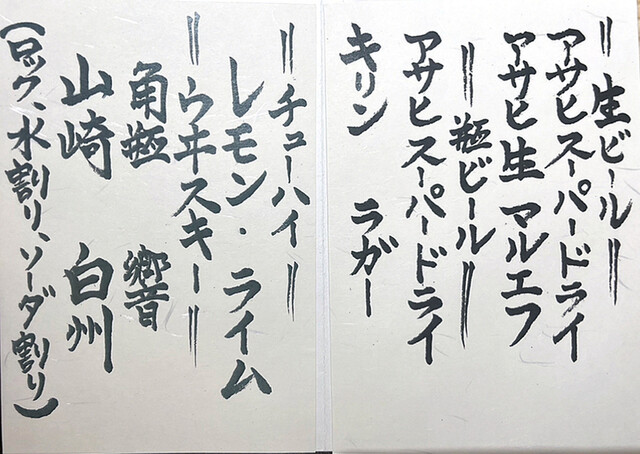 =生ビール=
アサヒスーパードライ
アサヒ生 マルエフ
=瓶ビール=
アサヒスーパードライ
キリン ラガー
=チューハイ=
レモン・ライム
=ウヰスキー=
角瓶 響
山崎 白州
(ロック、水割り、ソーダ割り)